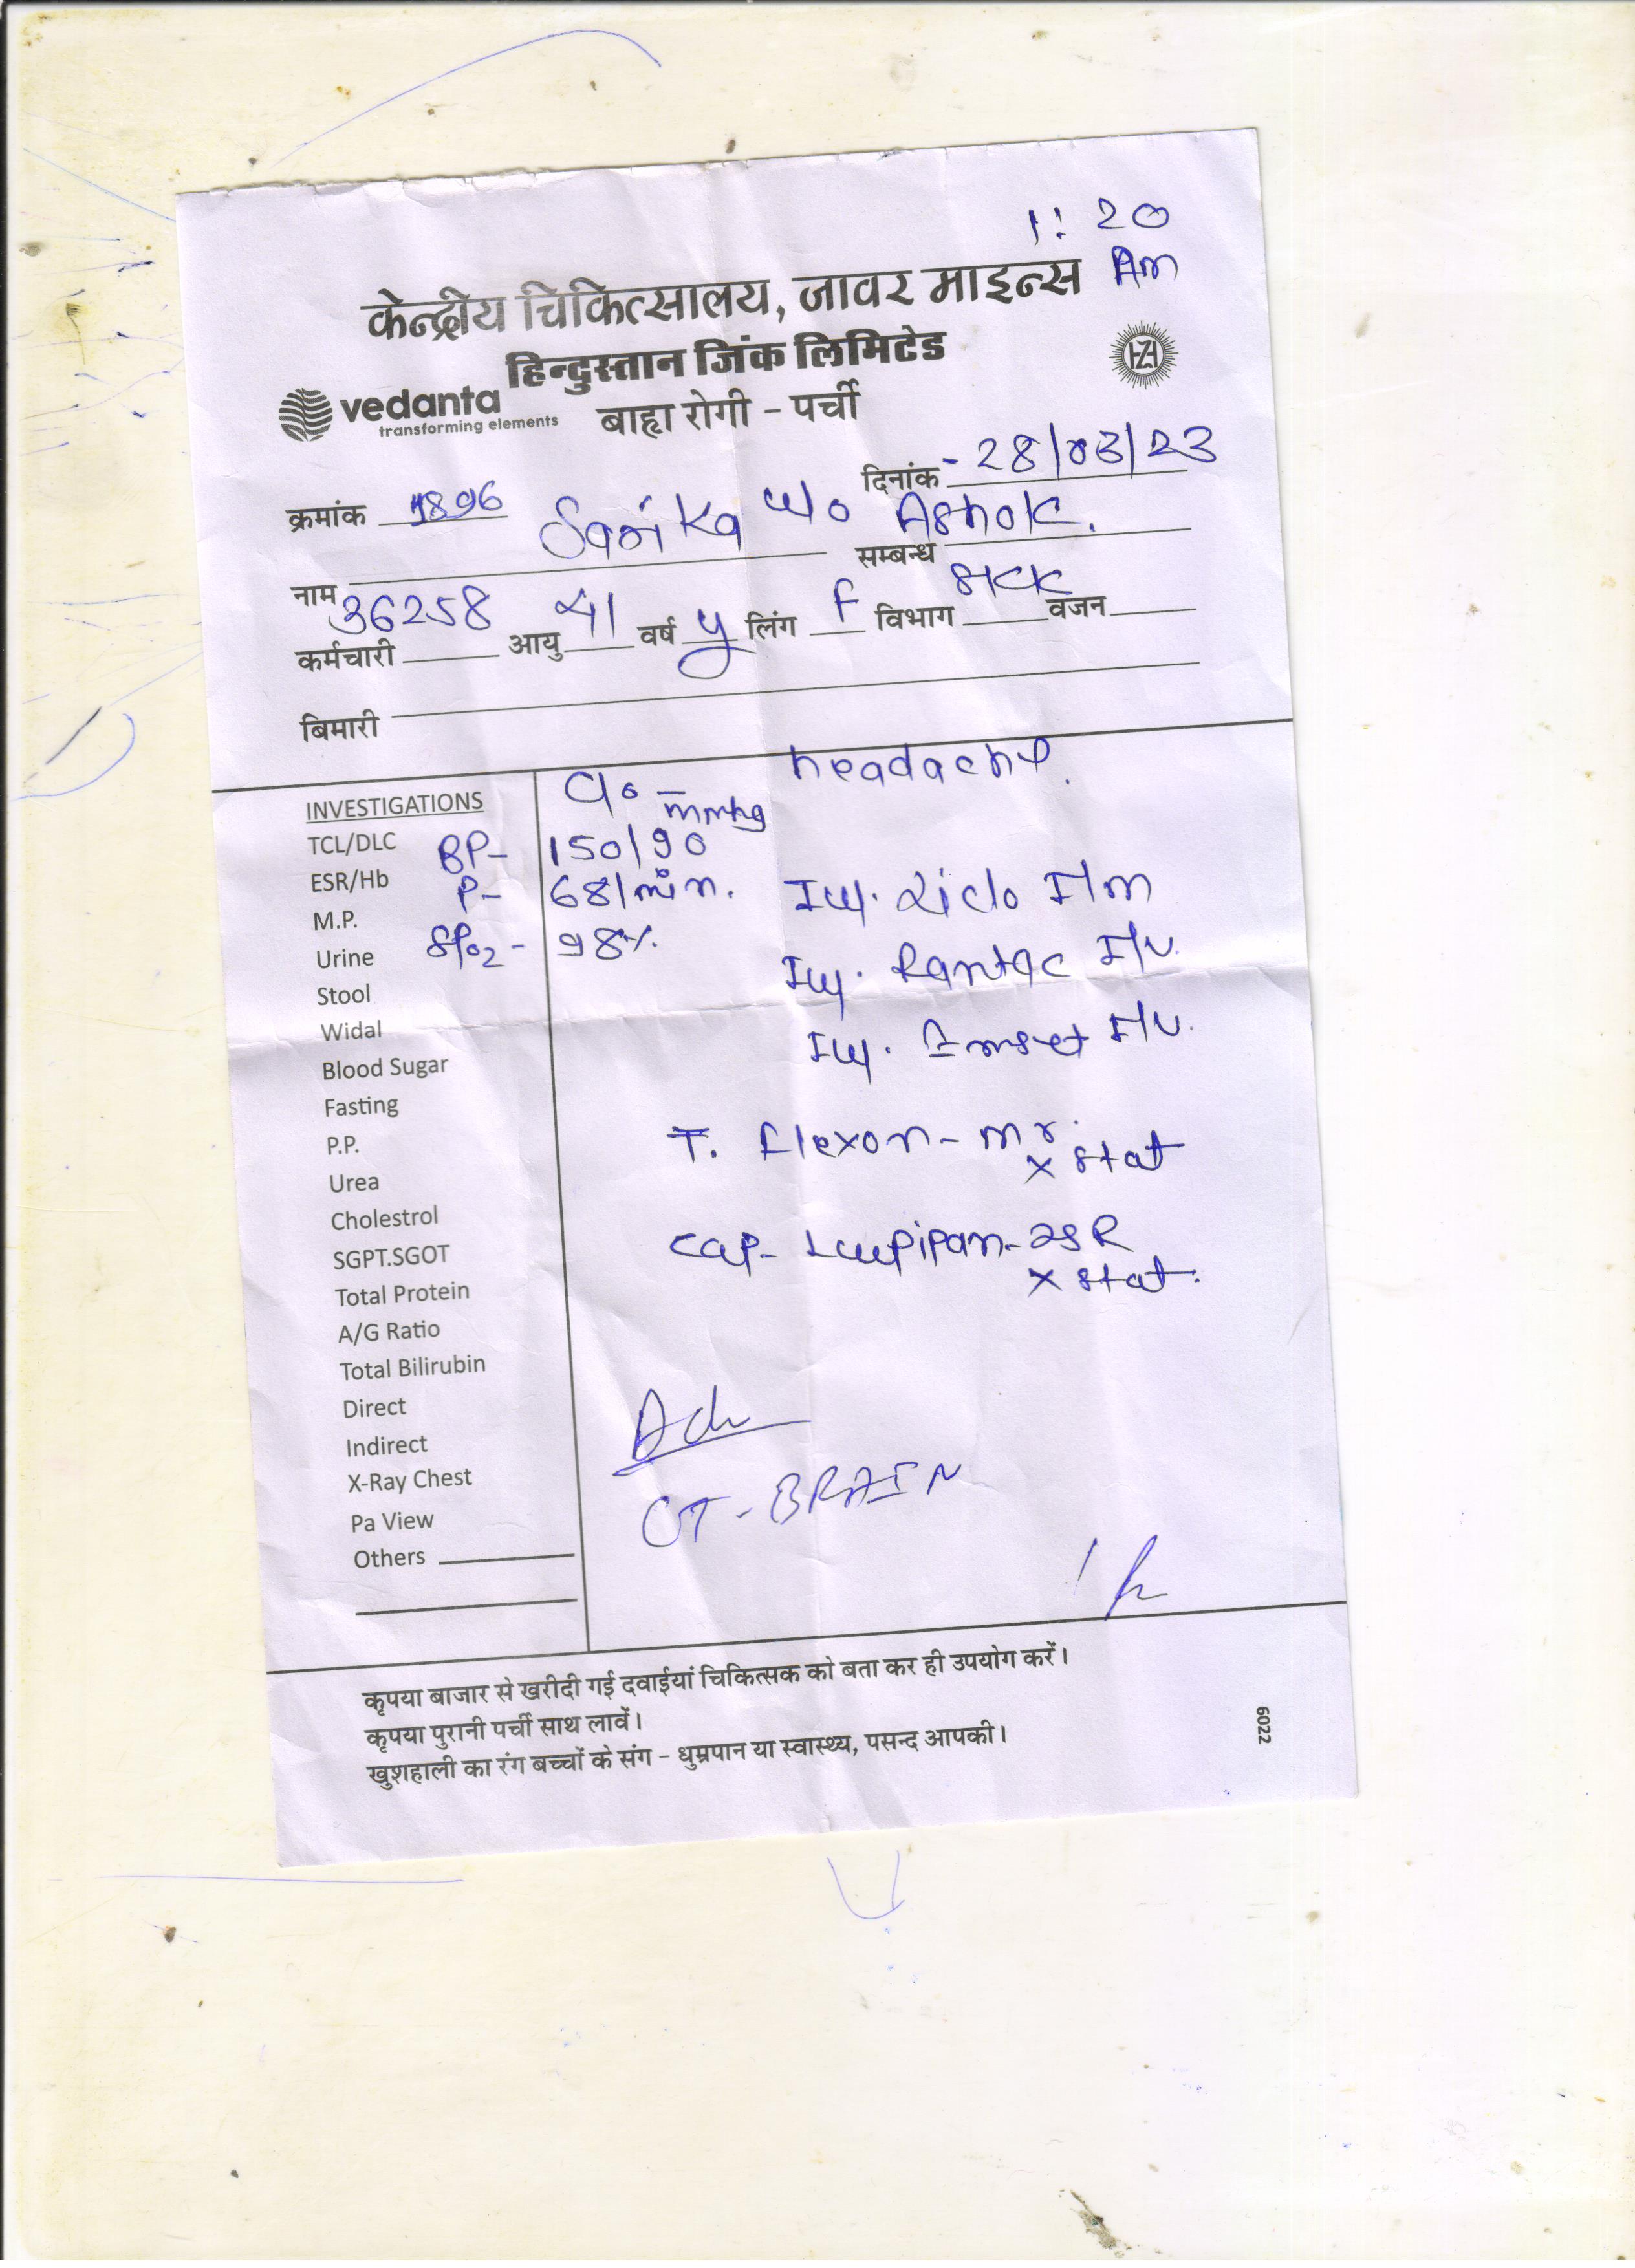 1:20
Am
केन्द्रीय चिकित्सालय, जावर माइन्स
हिन्दुस्तान जिंक लिमिटेड
vedanta
transforming elements
बाह्य रोगी - पर्ची
HZL
दिनांक - 28/03/23
क्रमांक 1896
नाम Sarika W/o सम्बन्ध Ashok.
कर्मचारी 36258 आयु 41 वर्ष y लिंग F विभाग वजन
बिमारी
INVESTIGATIONS
C/o - headache.
mmHg
TCL/DLC BP- 150/90
ESR/Hb P- 68/min. Inj. Diclo I/m
M.P.
Urine SPO2 - 98% Inj. Rantac I/V.
Stool
Widal Inj. Emset I/V.
Blood Sugar
Fasting
P.P. T. flexon - mr x stat
Urea
Cholestrol
SGPT.SGOT Cap- Lupipan-DSR x stat.
Total Protein
A/G Ratio
Total Bilirubin
Direct Adv
Indirect
X-Ray Chest CT-BRAIN
Pa View
Others
कृपया बाजार से खरीदी गई दवाईयां चिकित्सक को बता कर ही उपयोग करें।
कृपया पुरानी पर्ची साथ लावें।
खुशहाली का रंग बच्चों के संग - धुम्रपान या स्वास्थ्य, पसन्द आपकी।
6022